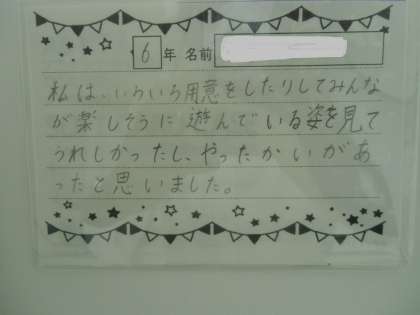 6年 名前
私は、いろいろ用意をしたりしてみんな
が楽しそうに遊んでいる姿を見て
うれしかったし、やったかいがあ
ったと思いました。